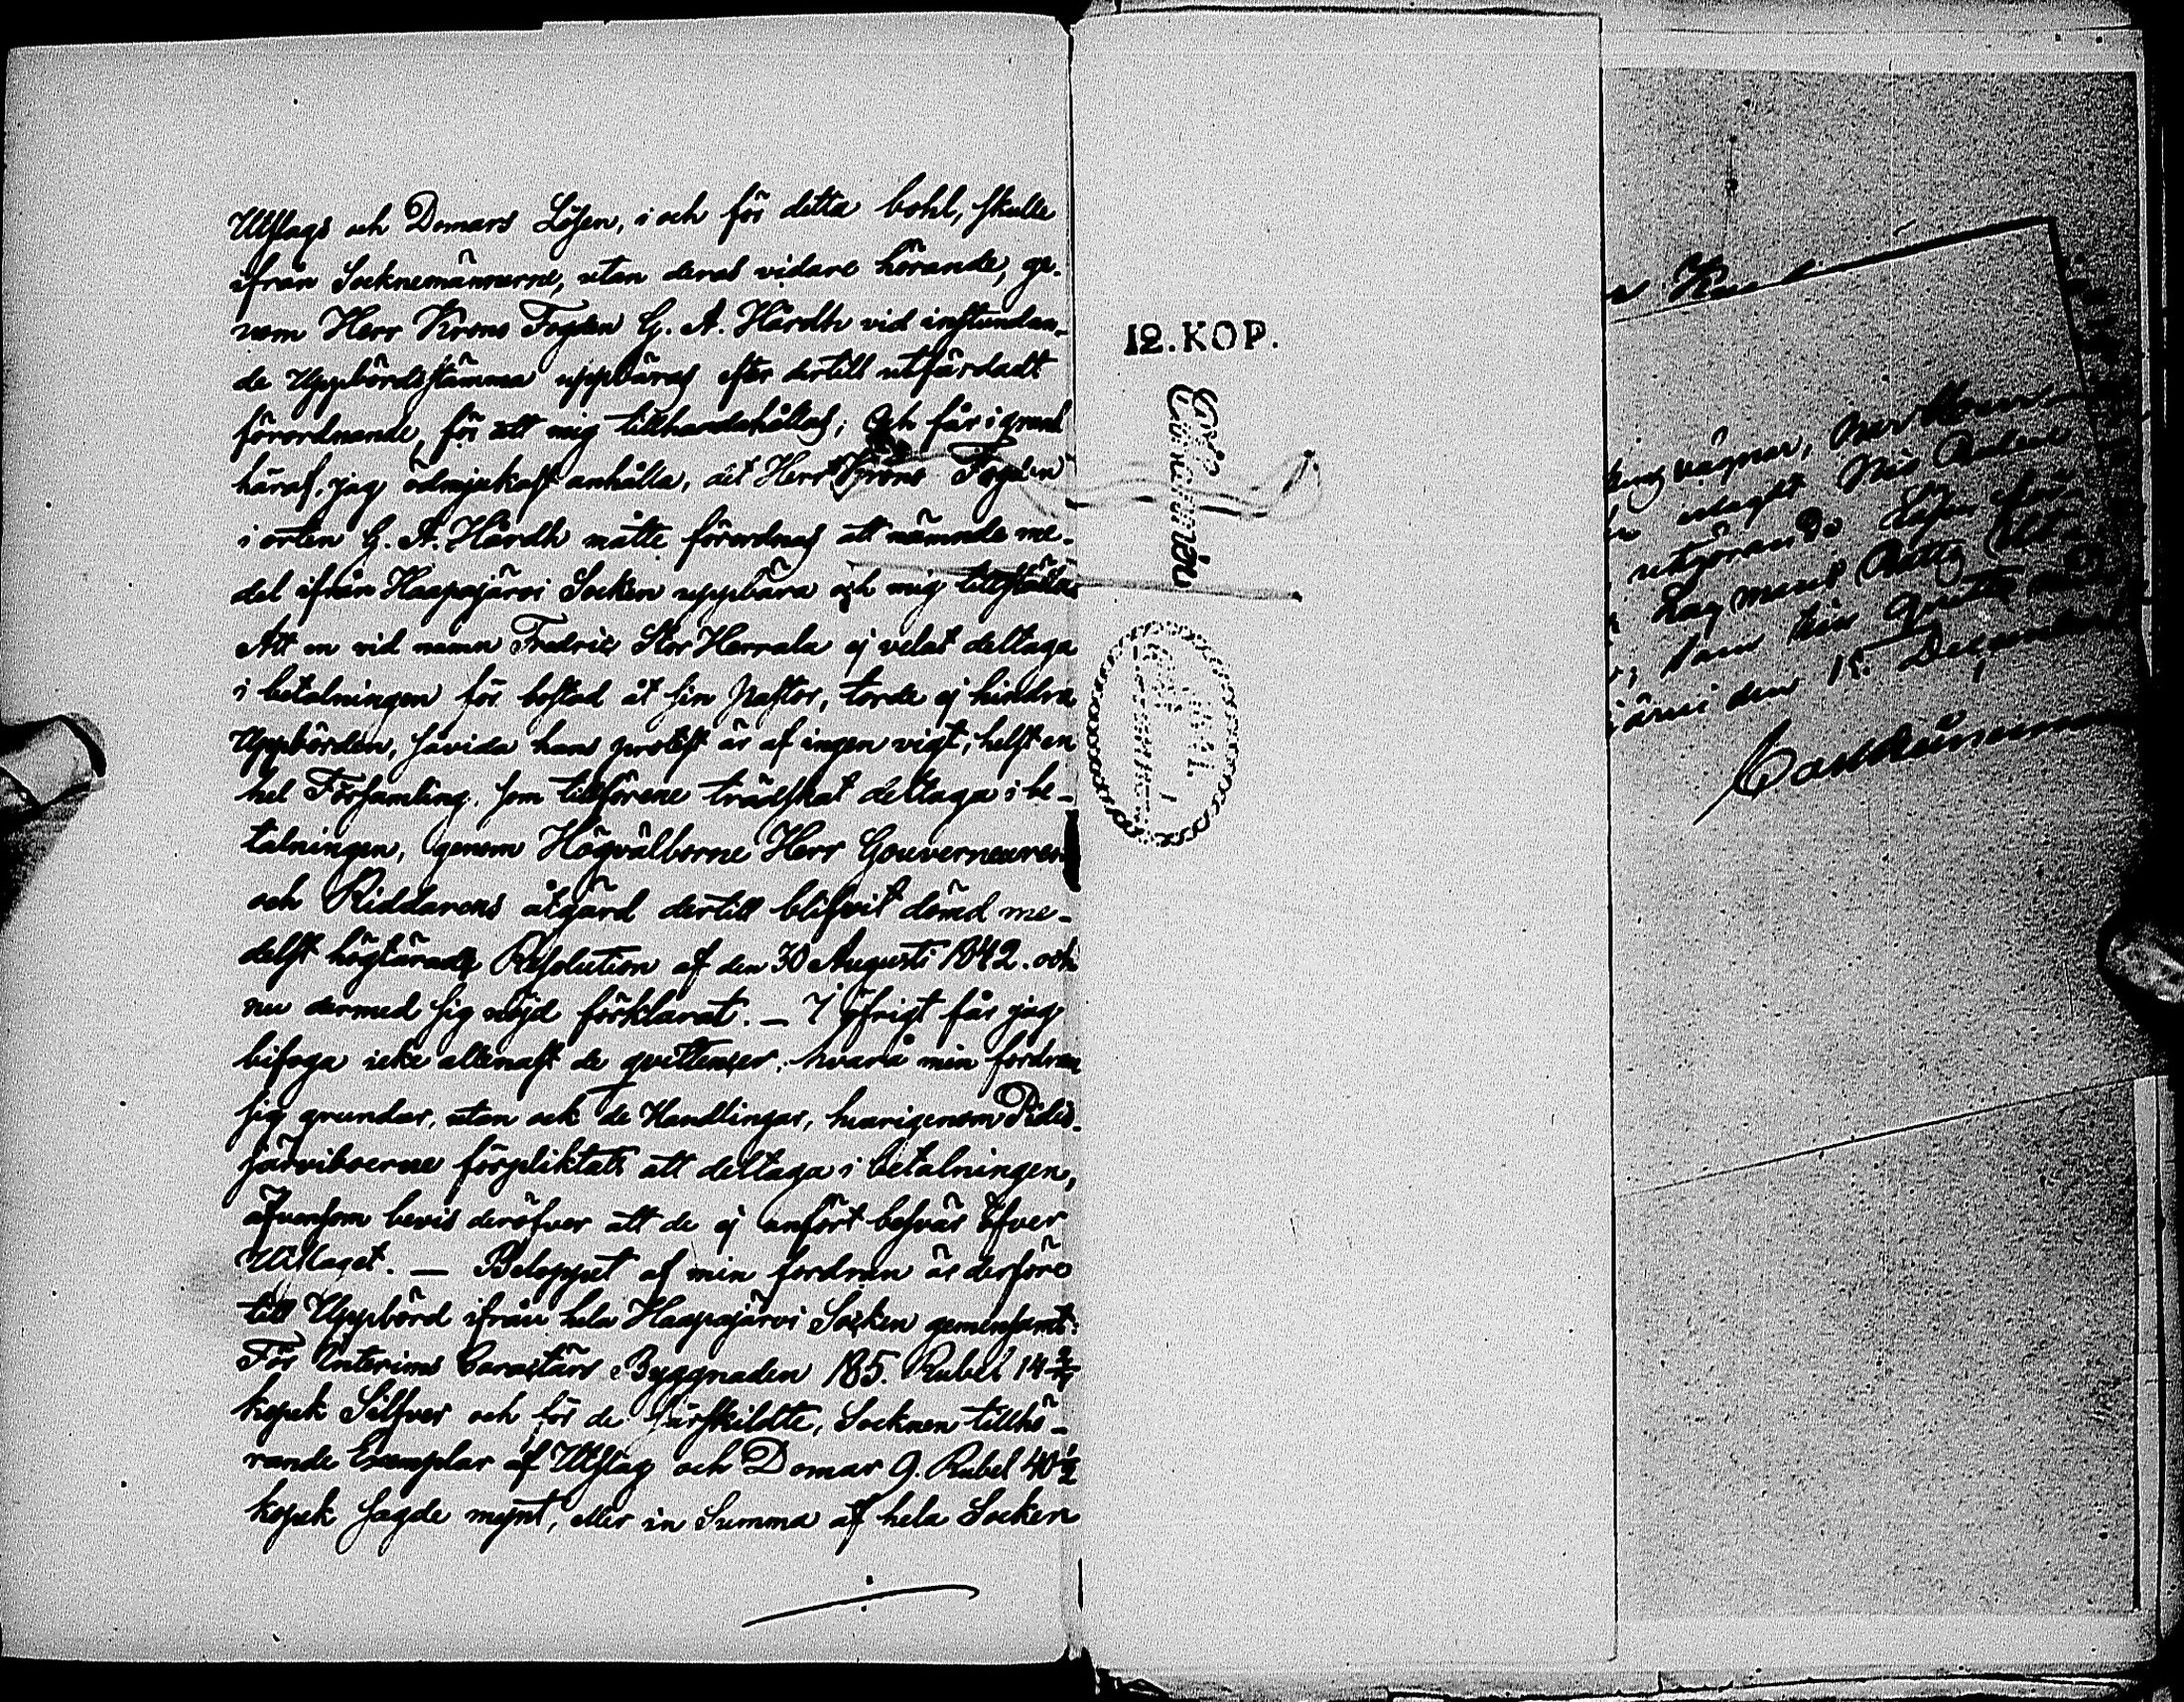 Utslags och Domars Lösen, i och för detta bohl, skulle
ifrån Socknemännerne, utan deras vidare hörande, ge-
nom Herr Krono Fogden G. A. Hårdh vid instundan-
de Uppbördsstämma uppbäras efter dertill utfärdadt
förordnande, för att mig tillhandahållas; Och får i grund
häraf, jag ödmjukast anhålla, det Herr Krono Fogden
i orten G. A. Hårdh måtte förordnas att nämnde me-
del ifrån Haapajärvi Socken uppbära och mig tillställa
Att en vid namn Fredric Stor Herrala ej velat deltaga
i betalningen för bostad åt sin Pastor, torde ej hindra
Uppbörden, såvida hans protest är af ingen vigt, helst en
hel Församling, som tillförene trädskat deltaga i be-
talningen, genom Högvälborne Herr Gouverneuren
och Riddarens åtgärd dertill blifvit dömd me-
delst högtärade Resolution af den 30 Augusti 1842. och
nu dermed sig nöjd förklarat. — I öfrigt får jag
bifoga icke allenast de qvittenser, hvarå min fordran
sig grundar, utan ock de Handlingar, hvarigenom Pidis-
järviboerne förpliktats att deltaga i betalningen,
äfvensom bevis deröfver att de ej anfört besvär öfver
Utslaget. — Beloppet af min fordran är derföre
till Uppbörd ifrån hela Haapajärvi Socken gemensamt:
För Interims Caractärs Byggnaden 185. Rubel 14
kopek Silfver och för de särskildte, Socknen tillhö-
rande Exemplar af Utslag och Domar 9. Rubel 40 1/2
kopek sagde mynt, eller in Summa af hela Socken
12. KOP.
vägnar,
utgörande Lösen för
Lagmans Rätts Ut-
som här qvitteras
järvi den 15 December